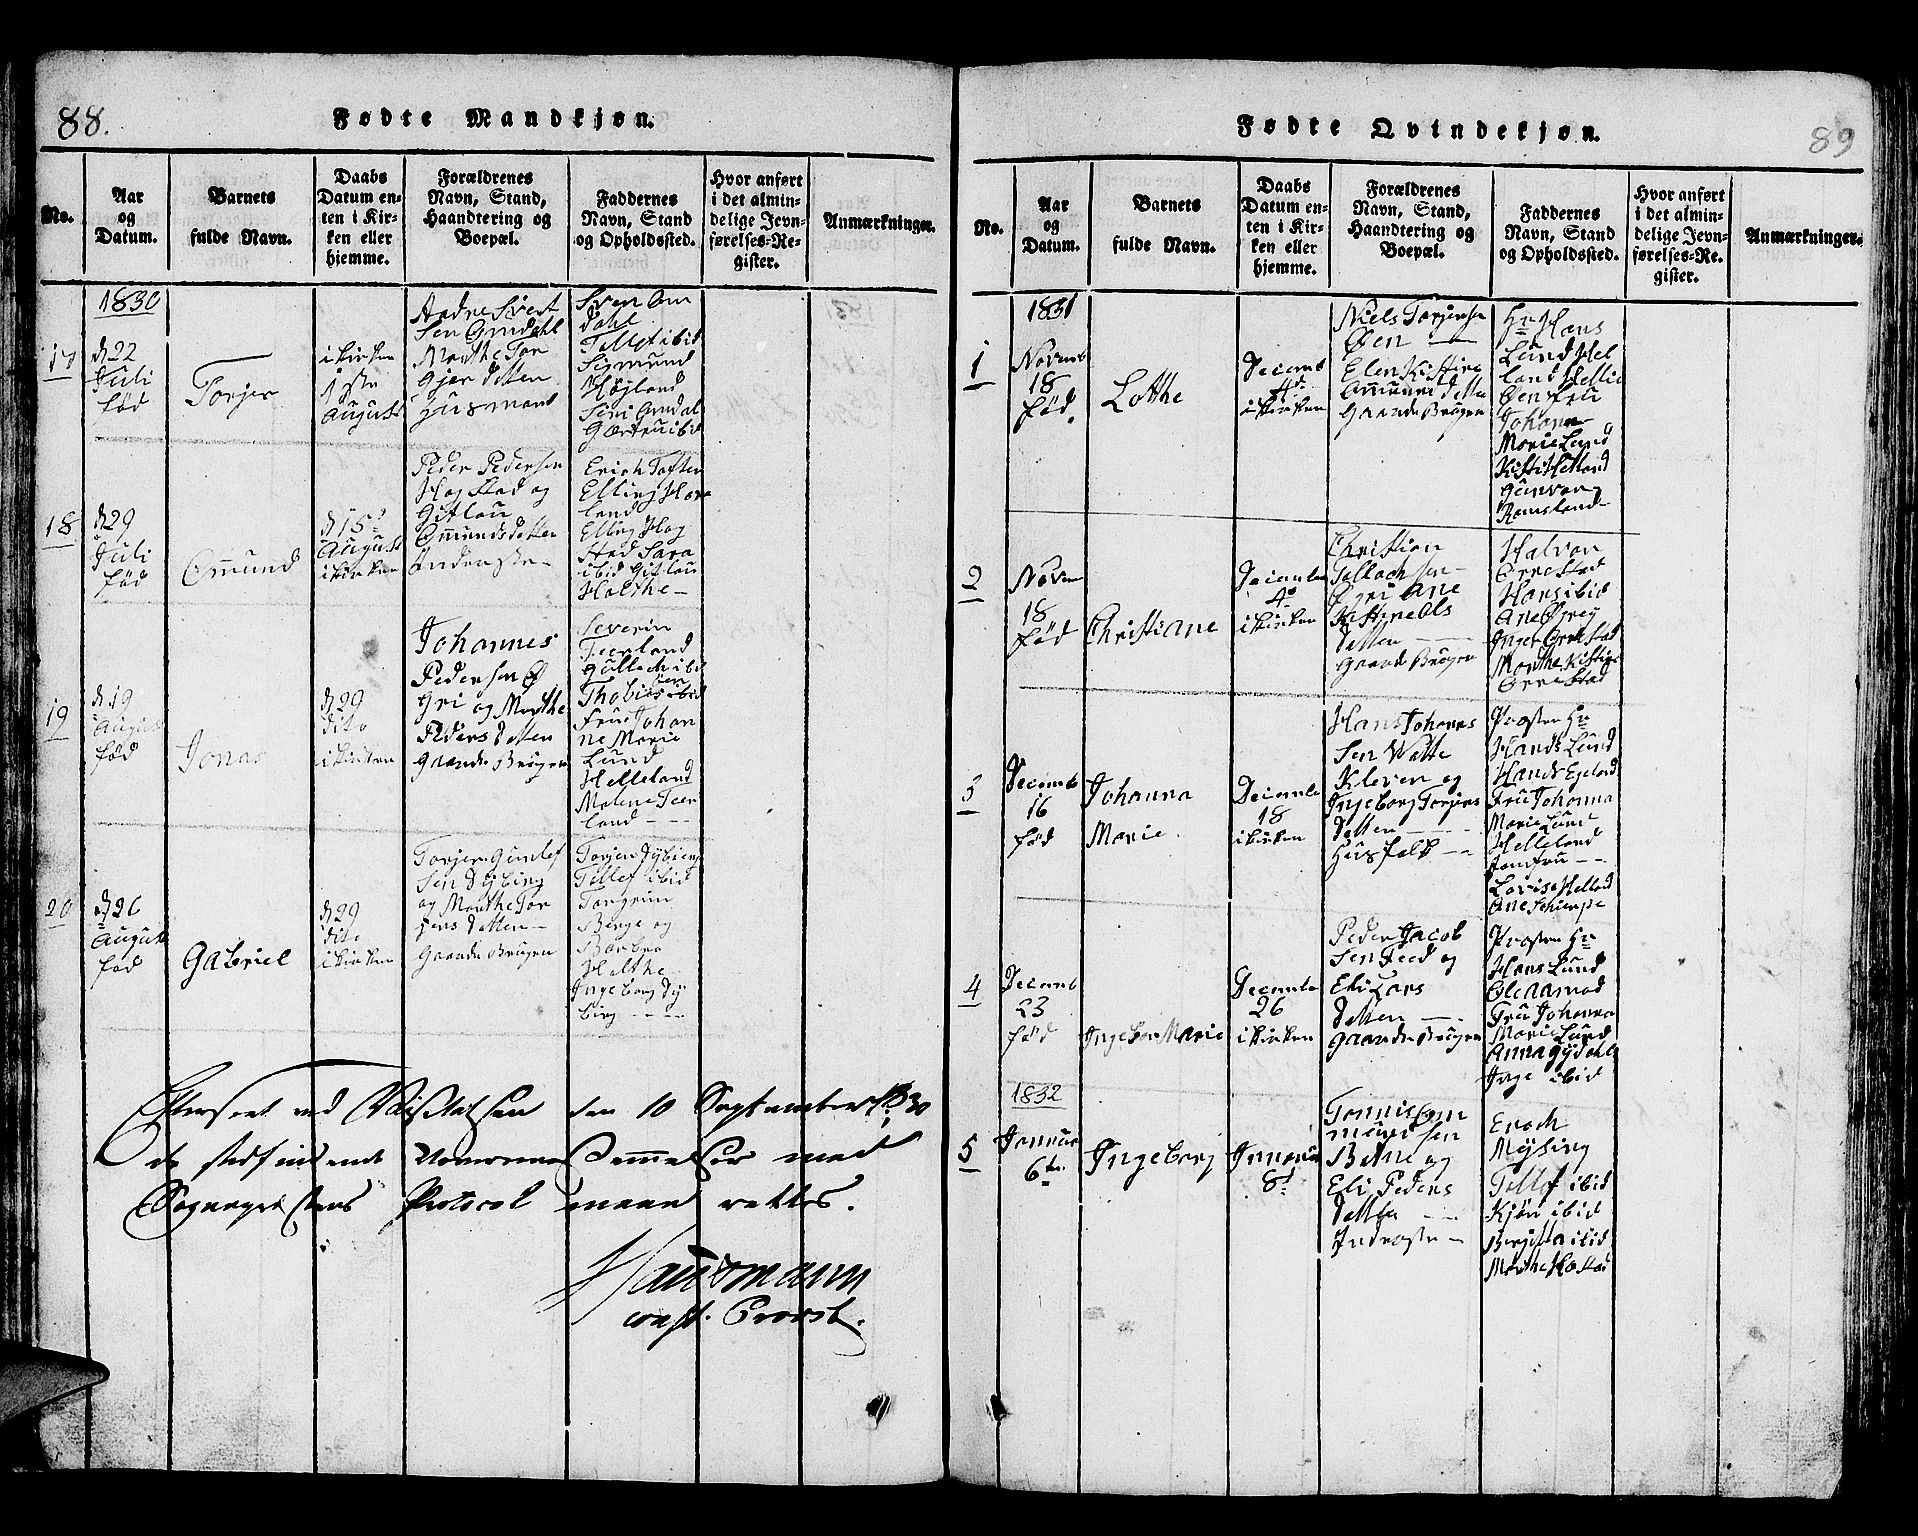 88.
Fødte Mandkjøn.
No.
Aar
og
Datum.
Barnets
fulde Navn.
Daabs
Datum en-
ten i Kir-
ken eller
hjemme.
Forældrenes
Navn, Stand,
Haandtering og
Boepæl.
Faddernes
Navn, Stand
og Opholdssted.
Hvor anført
i det almin-
delige Jevn-
førelses-Re-
gister.
Anmærkninger.
1830
17
d 22
Juli
fød
Torjer
i Kirken
1ste
August
Andre Sivert
Sen Omdahl
Marthe Tor
Gjers Datter
Huusmand
Sven Om
dahl
Tellef ibid
Sigmund
Højland
Siri Omdal
18
d 29
Juli
fød
Omund
d 15
August
i Kirken
Peder Pedersen
Hogstad og
Omundsdatter
Erich Tofter
Elling Hove
land
Elling Hog
stad Sara
ibid
Halthe
19
d 19
August
fød
Jonas
d 29
dito
i Kirken
Johannes
Pedersen Ø
gri og Marthe
Peders datter
Gaard Brugen
Severin
Teenland
Thobias ibid
Fru Johan
ne Marie
Lund
Helleland
Malene Teen
land
20
d 26
August
fød
Gabriel
d 29
dito
i Kirken
Torjer Gunlef
Sen Dybing
og Marthe Tor
jers datter
Gaard Brugen
Torjen Dybing
Tellef ibid
Torgrim
Berge og
Barbra
Halthe
Ingeborg Dy
bing
Efterseet ved Visitatsen den 10 September 1830
de stedfindende Uoverens Semmelser med
Sognepræstens Protocol maae rettes.
Hausmann
const. Provst.
89
Fødte Qvindekjøn.
No.
Aar
og
Datum.
Barnets
fulde Navn.
Daabs
Datum en-
ten i Kir-
ken eller
hjemme.
Forældrenes
Navn, Stand,
Haandtering og
Boepæl.
Faddernes
Navn, Stand
og Opholdssted.
Hvor anført
i det almin-
delige Jevn-
førelses-Re-
gister.
Anmærkninger.
1831
1
Novemb
18
fød
Lothe
Decemb
4de
i Kirken
Niels Torjersen
Øen
Elen Kistine
Omund datter
Gaard Brugen
Hr Hans
Lund Hel
land
Johanne
Marie Lund
Kisti Hetland
Gunvor
Ramsland
2
Novem
18
fød
Christiane
Decembr
4de
i Kirken
Christian
Tellach sen
Øgri Ane
Kistine Ols
datter
Gaard Brugen
Halvor
Orrestad
Hans ibid
Ane Øgrey
Inger Orrestad
Marthe Kistine
Orrestad
3
Decemb
16
fød
Johanna
Marie
Decembr
18
i Kirken
Hans Johanes
Sen Watte
Kleven og
Ingeborg Torjers
datter
Husfolk
Prosten Hr
Hans Lund
Hans Egeland
Fru Johanna
Marie Lund
Helleland
Jomfru
Lovise Helland
Ane
4
Decemb
23
fød
Ingebor Marie
Decembr
26
i Kirken
Peder Jacob
Sen Eed og
Eli Lars
datter
Gaard Brugen
Prosten Hr
Hans Lund
Ole Aamod
Fru Johanna
Marie Lund
Anna Gydahl
Inge ibid
1832
5
Januar
6te
Ingeborg
Januar
8de
Tonnis Om
mund sen
Eli Peders
datter
Inderste
Enoch
Mysing
Tellef ibid
Kjøn ibid
Bergitta ibid
Marthe